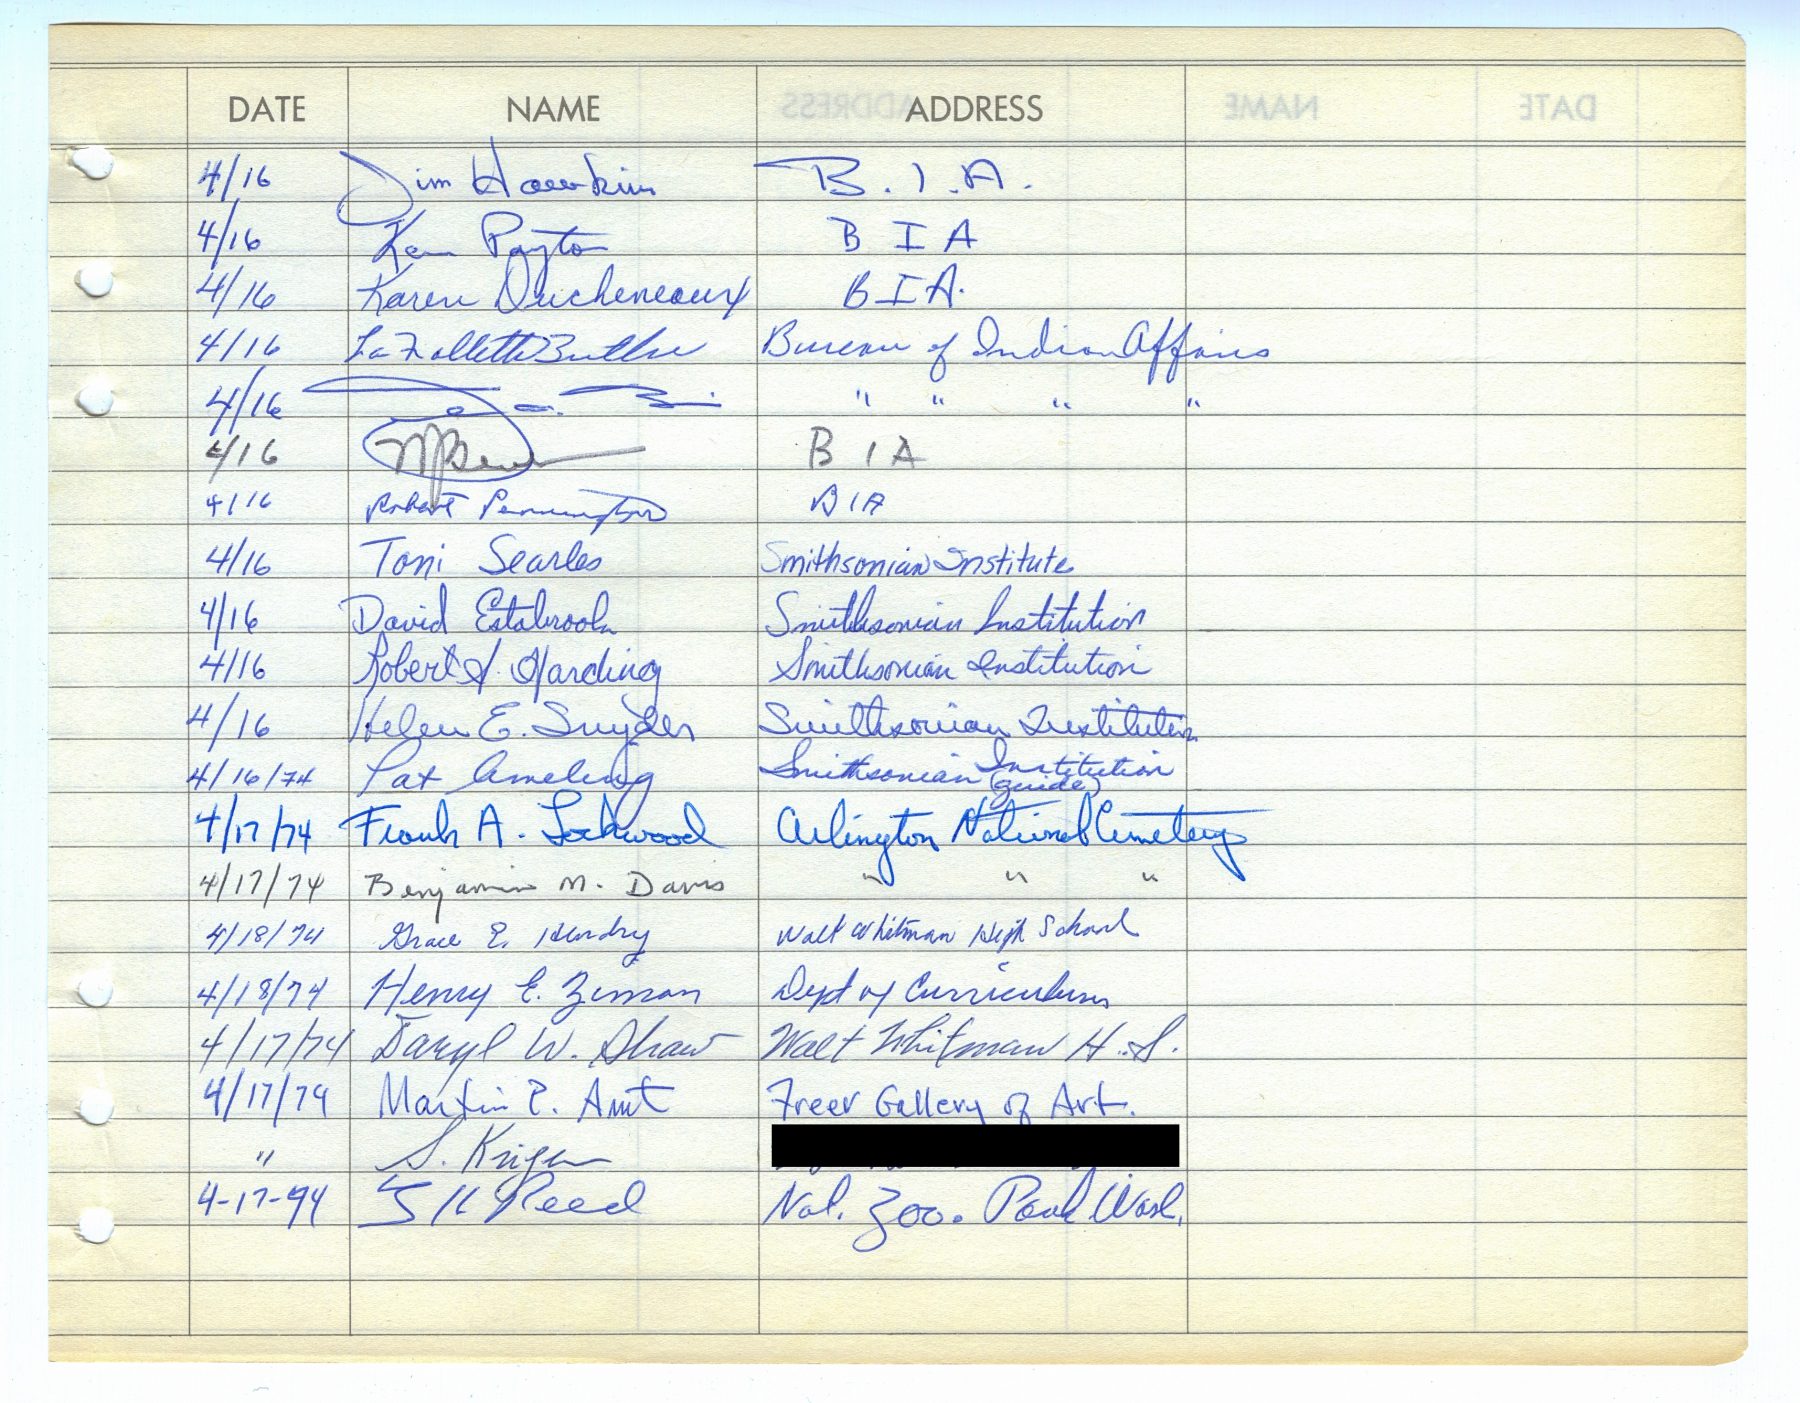 DATE NAME ADDRESS
4/16 Jim Hawkins B.I.A.
4/16 Ken Payton B I A
4/16 Karen Ducheneaux B I A.
4/16 LaFollette Butler Bureau of Indian Affairs
4/16 " " " "
4/16 B I A
4/16 Robert Pennington BIA
4/16 Toni Searles Smithsonian Institute
4/16 David Estabrook Smithsonian Institution
4/16 Robert S. Harding Smithsonian Institution
4/16 Helen E. Snyder Smithsonian Institution
4/16/74 Pat Ameling Smithsonian Institution (guide)
4/17/74 Frank A. Lockwood Arlington National Cemetery
4/17/74 Benjamin M. Davis " " "
4/18/74 Grace E. Hendry Walt Whitman High School
4/18/74 Henry E. Ziman Dept of Curriculum
4/17/74 Daryl W. Shaw Walt Whitman H.S.
4/17/74 Martin P. Amt Freer Gallery of Art.
" S. Kriger
4-17-74 Reed Nat. Zoo. Park Wash.